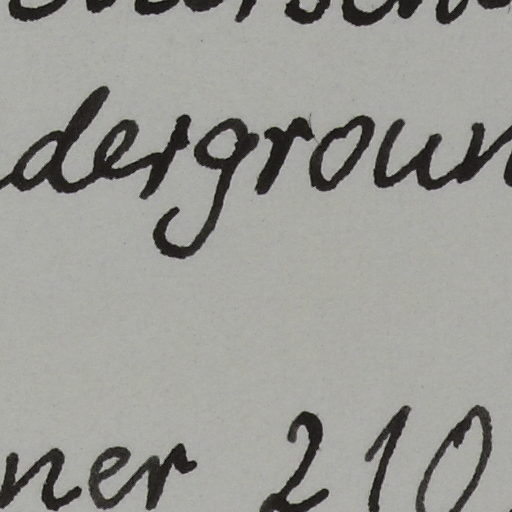 dergroun
ner 210